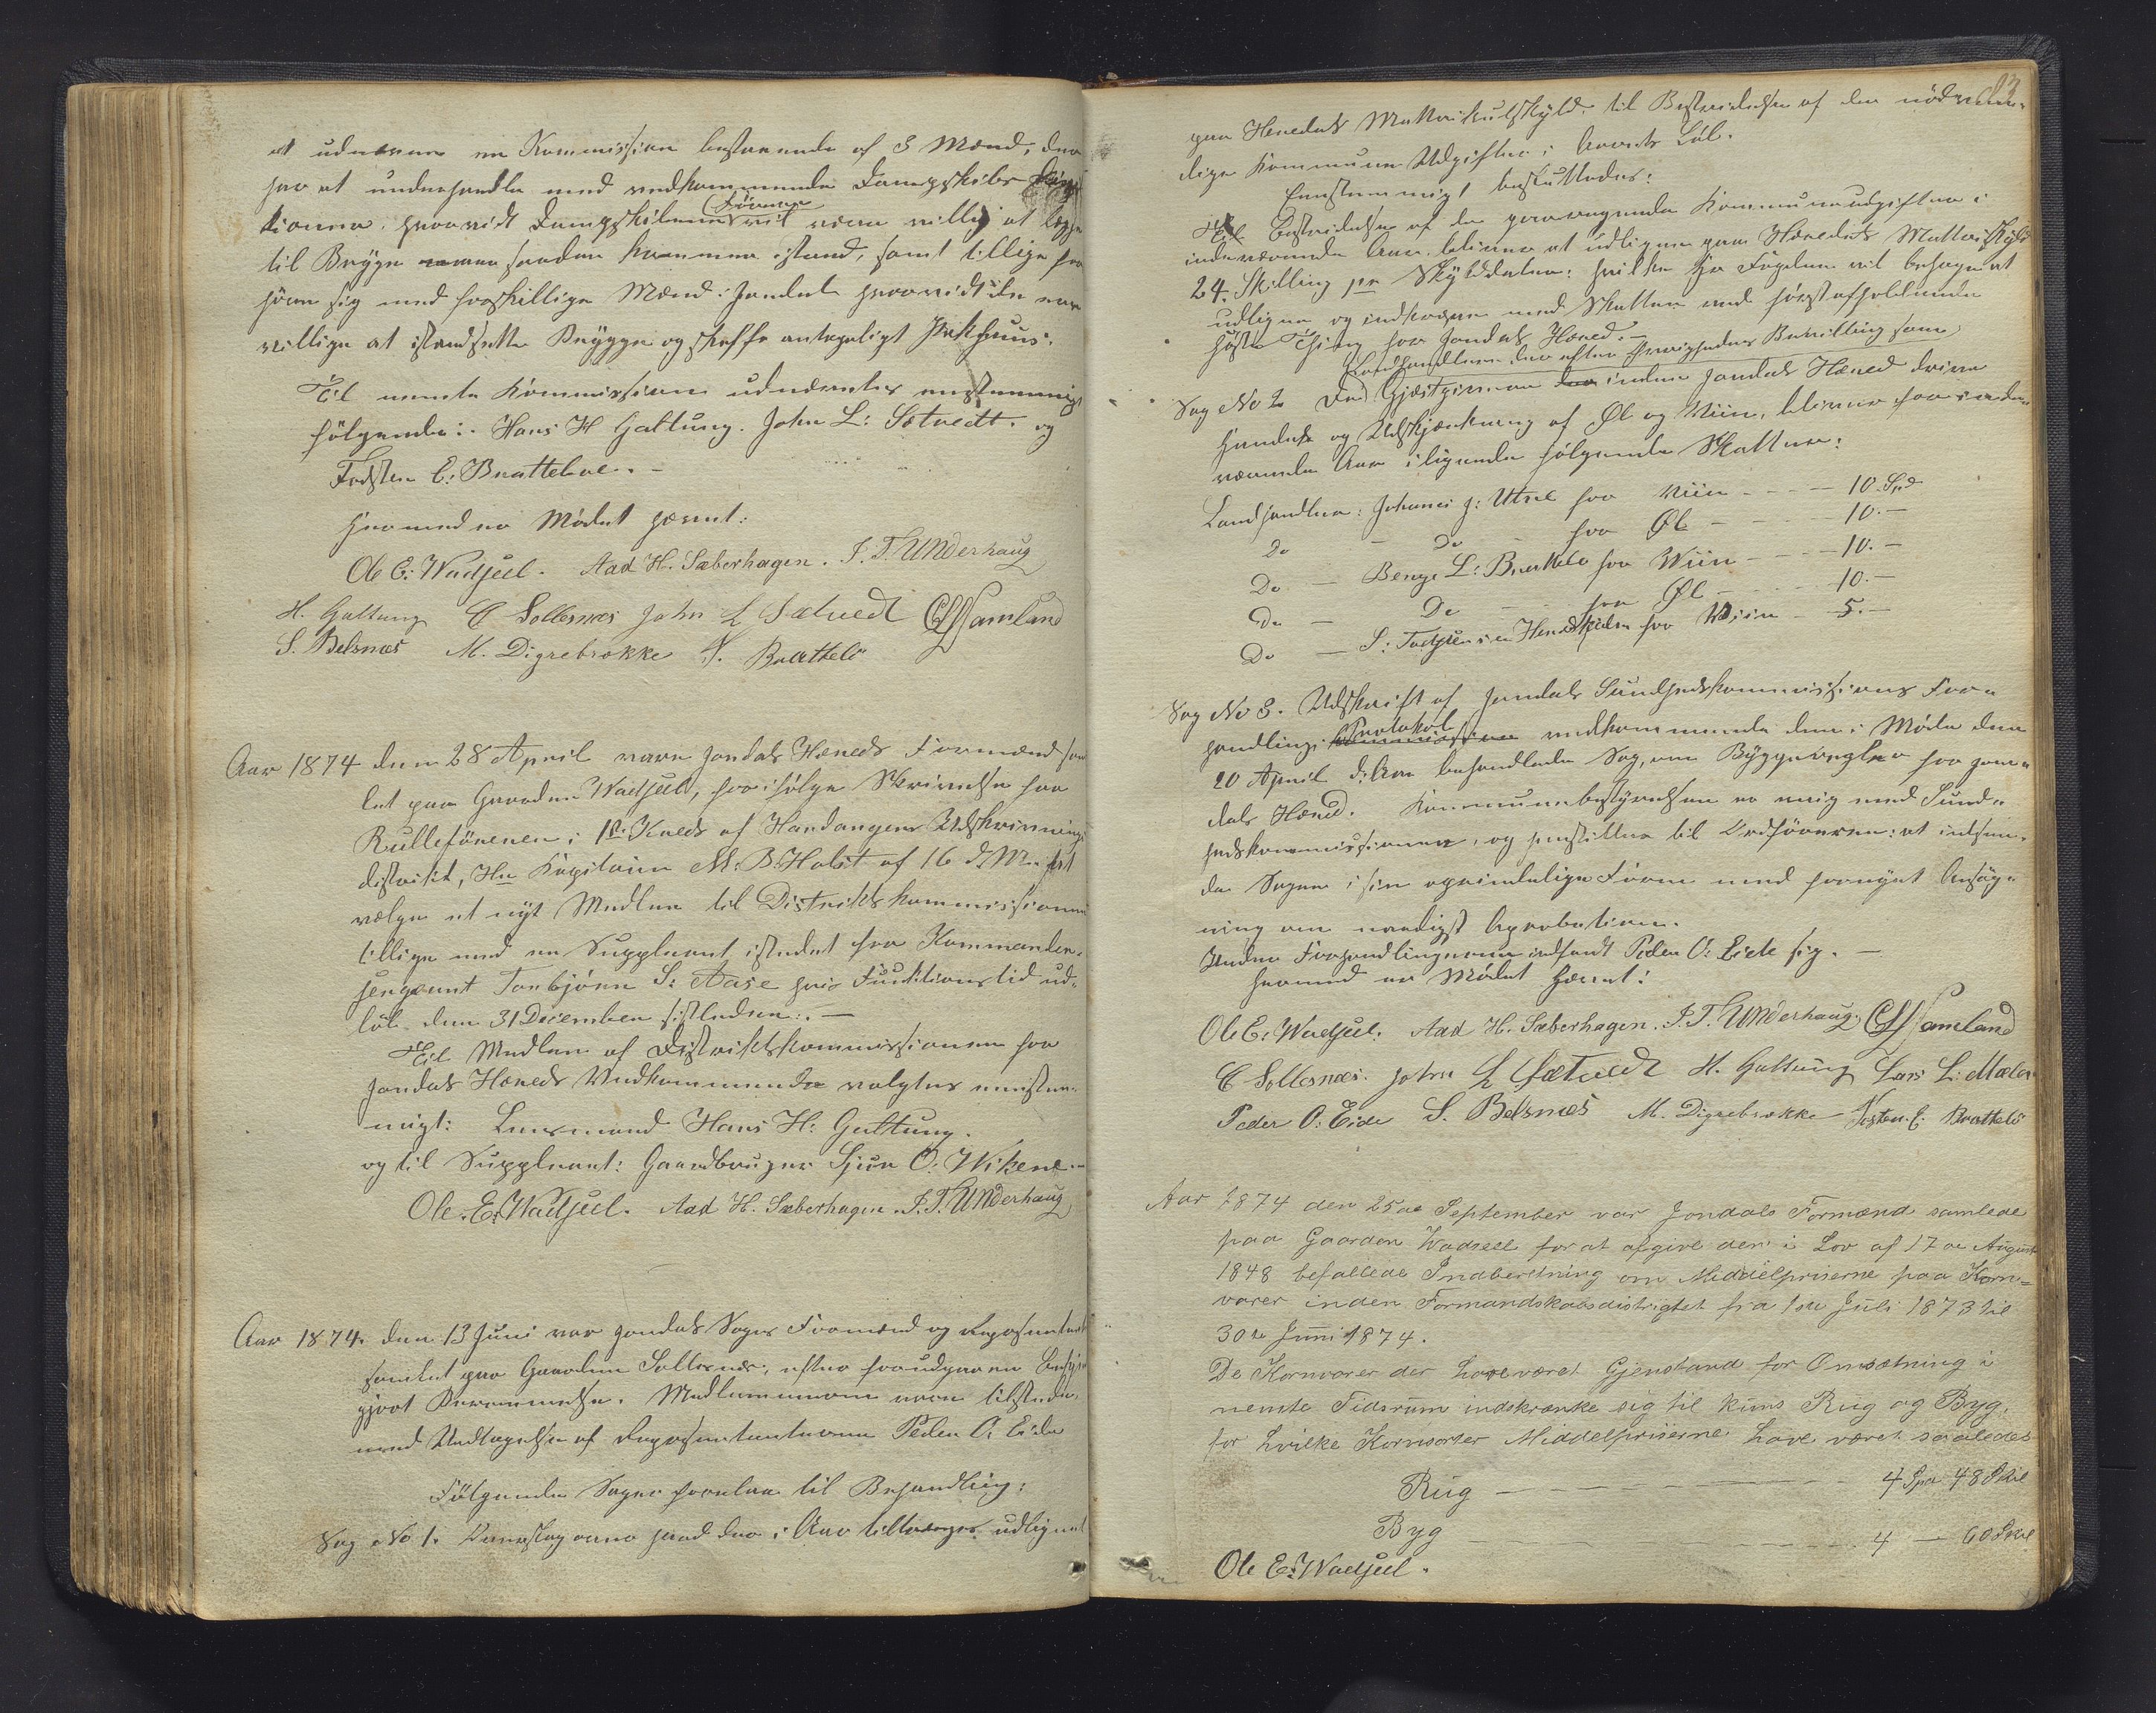 at udnævne en Kommission bestaaende af 3 Mænd, der
har at underhandle med vedkommende Dampskibs
tioner, hvorvidt Dampskibene Förerne vil være villig at lægge
til Brygge naar saadan kommer istand, samt tillige for
høre sig med forskillige Mænd i Jondal hvorvidt de ere
villige at istandsette Brygge og skaffe antageligt Pakhuus.
Til nemte Kommission udnævntes enstemmigt
fölgende: Hans H Galtung. John L: Sætvedt. og
Torsten E: Bratteboe. –
Hermed er Mödet hævet:
Ole E: Wadseel. Aad H. Sæberhagen. I. T. Underhaug
H. Galtung E Sollesnæs John L Sætvedt C H Samland
S. Belsnæs M. Digrebrække T. Brattebö
Aar 1874 den 28 April vare Jondals Herreds Formænd sam
let paa Gaarden Wadseel, for ifölge Skrivelse fra
Rulleföreren i 1ste Kreds af Hardangers Udskrivnings
distrikt, Hr Kapitain M. B. Holst af 16 d. M. at
vælge et nyt Medlem til Distriktskommissionen
tillige med en Suppleant istedet for Kommander-
sergeant Torbjörn S: Aase hvis Funktionstid ud-
löb den 31 December sistleden. –
Til Medlem af Distriktskommissionen for
Jondals Herreds Vedkommende valgtes enstem-
migt: Lensmand Hans H: Galtung.
og til Suppleant: Gaardbruger Sjur O: Wikene. –
Ole E. Wadseel. Aad H. Sæberhagen. I. T. Underhaug
Aar 1874. den 13 Juni var Jondals Sogns Formænd og Repræsentant
samlet paa Gaarden Sollesnæs, efter forudgaaen
gjort Berammelse. Medlemmerne vare tilstede,
med Undtagelse af Repræsentanterne Peder O. Eide
Fölgende Sager forelaa til Behandling:
Sag No 1. Hvorstor Sum skal der i Aar udlignes
paa Herredets Matrikulskyld til Bestridelse af de nödven-
dige Kommune Udgifter i Aarets Löb.
Enstemmigt besluttedes:
Til Bestridelse af de paaregnende Kommuneudgifter i
indeværende Aar, bliver at udligne paa Herredets Matrikskyld
24. Skilling pr Skylddaler: hvilke Hr Fogden vil behage at
udligne og indkræve med Skatten ved först afholdende
Höste Thing for Jondals Herred. –
Landhandlere der efter Övrighedens Bevilling som
Sag No 2 De Gjæstgivere der inden Jondals Herred drive
Handel og Udskjænkning af Öl og Viin, bliver for inde-
værende Aar ilignende fölgende Skatter:
Landhandler: Johanes J: Utne for Viin - - - 10 Spd
Do - Do - for Öl - - 10. –
Do - Berge L: Brattebö for Wiin - - - 10. –
Do - Do - - for Öl - - - 10. –
Do - S: Tostensen Herredskilen for Wiin - 5. –
Sag No 3. Udskrift af Jondals Sundhedskommissions For-
handlings Protokol vedkommende den i Möde den
20 April d: Aar behandlede Sag, om Byggeregler for Jon-
dals Herred. Kommunebestyrelsen er enig med Sund-
hedskommissionen, og henstiller til Ordföreren: at indsen-
de Sagen i sin oprindelige Form med fornyet Ansög-
ning om naadigst Aprobation.
Under Forhandlingerne indfandt Peder O: Eide sig. –
Hermed er Mödet hævet:
Ole E. Wadseel. Aad H. Sæberhagen. I. T. Underhaug. C H Samland
E Sollesnæs. John L Sætvedt H. Galtung Lars L. Mæland
Peder O: Eide S. Belsnæs M. Digrebrække Tosten E: Brattebö
Aar 1874 den 25de September var Jondals Formænd samlede
paa Gaarden Wadseel for at afgive den i Lov af 17de August
1848 befallede Indberetning om Middelpriserne paa Korn-
varer inden Formandskabsdistrigtet fra 1ste Juli 1873 til
30te Juni 1874.
De Kornvarer der have været Gjenstand for Omsætning i
nemte Tidsrum indskrænke sig til kuns Rug og Byg,
for hvilke Kornsorter Middelpriserne have været saaledes
Rug — 4 Spd 48 Skil
Byg — 4 — 60 Skil
Ole E: Wadseel.